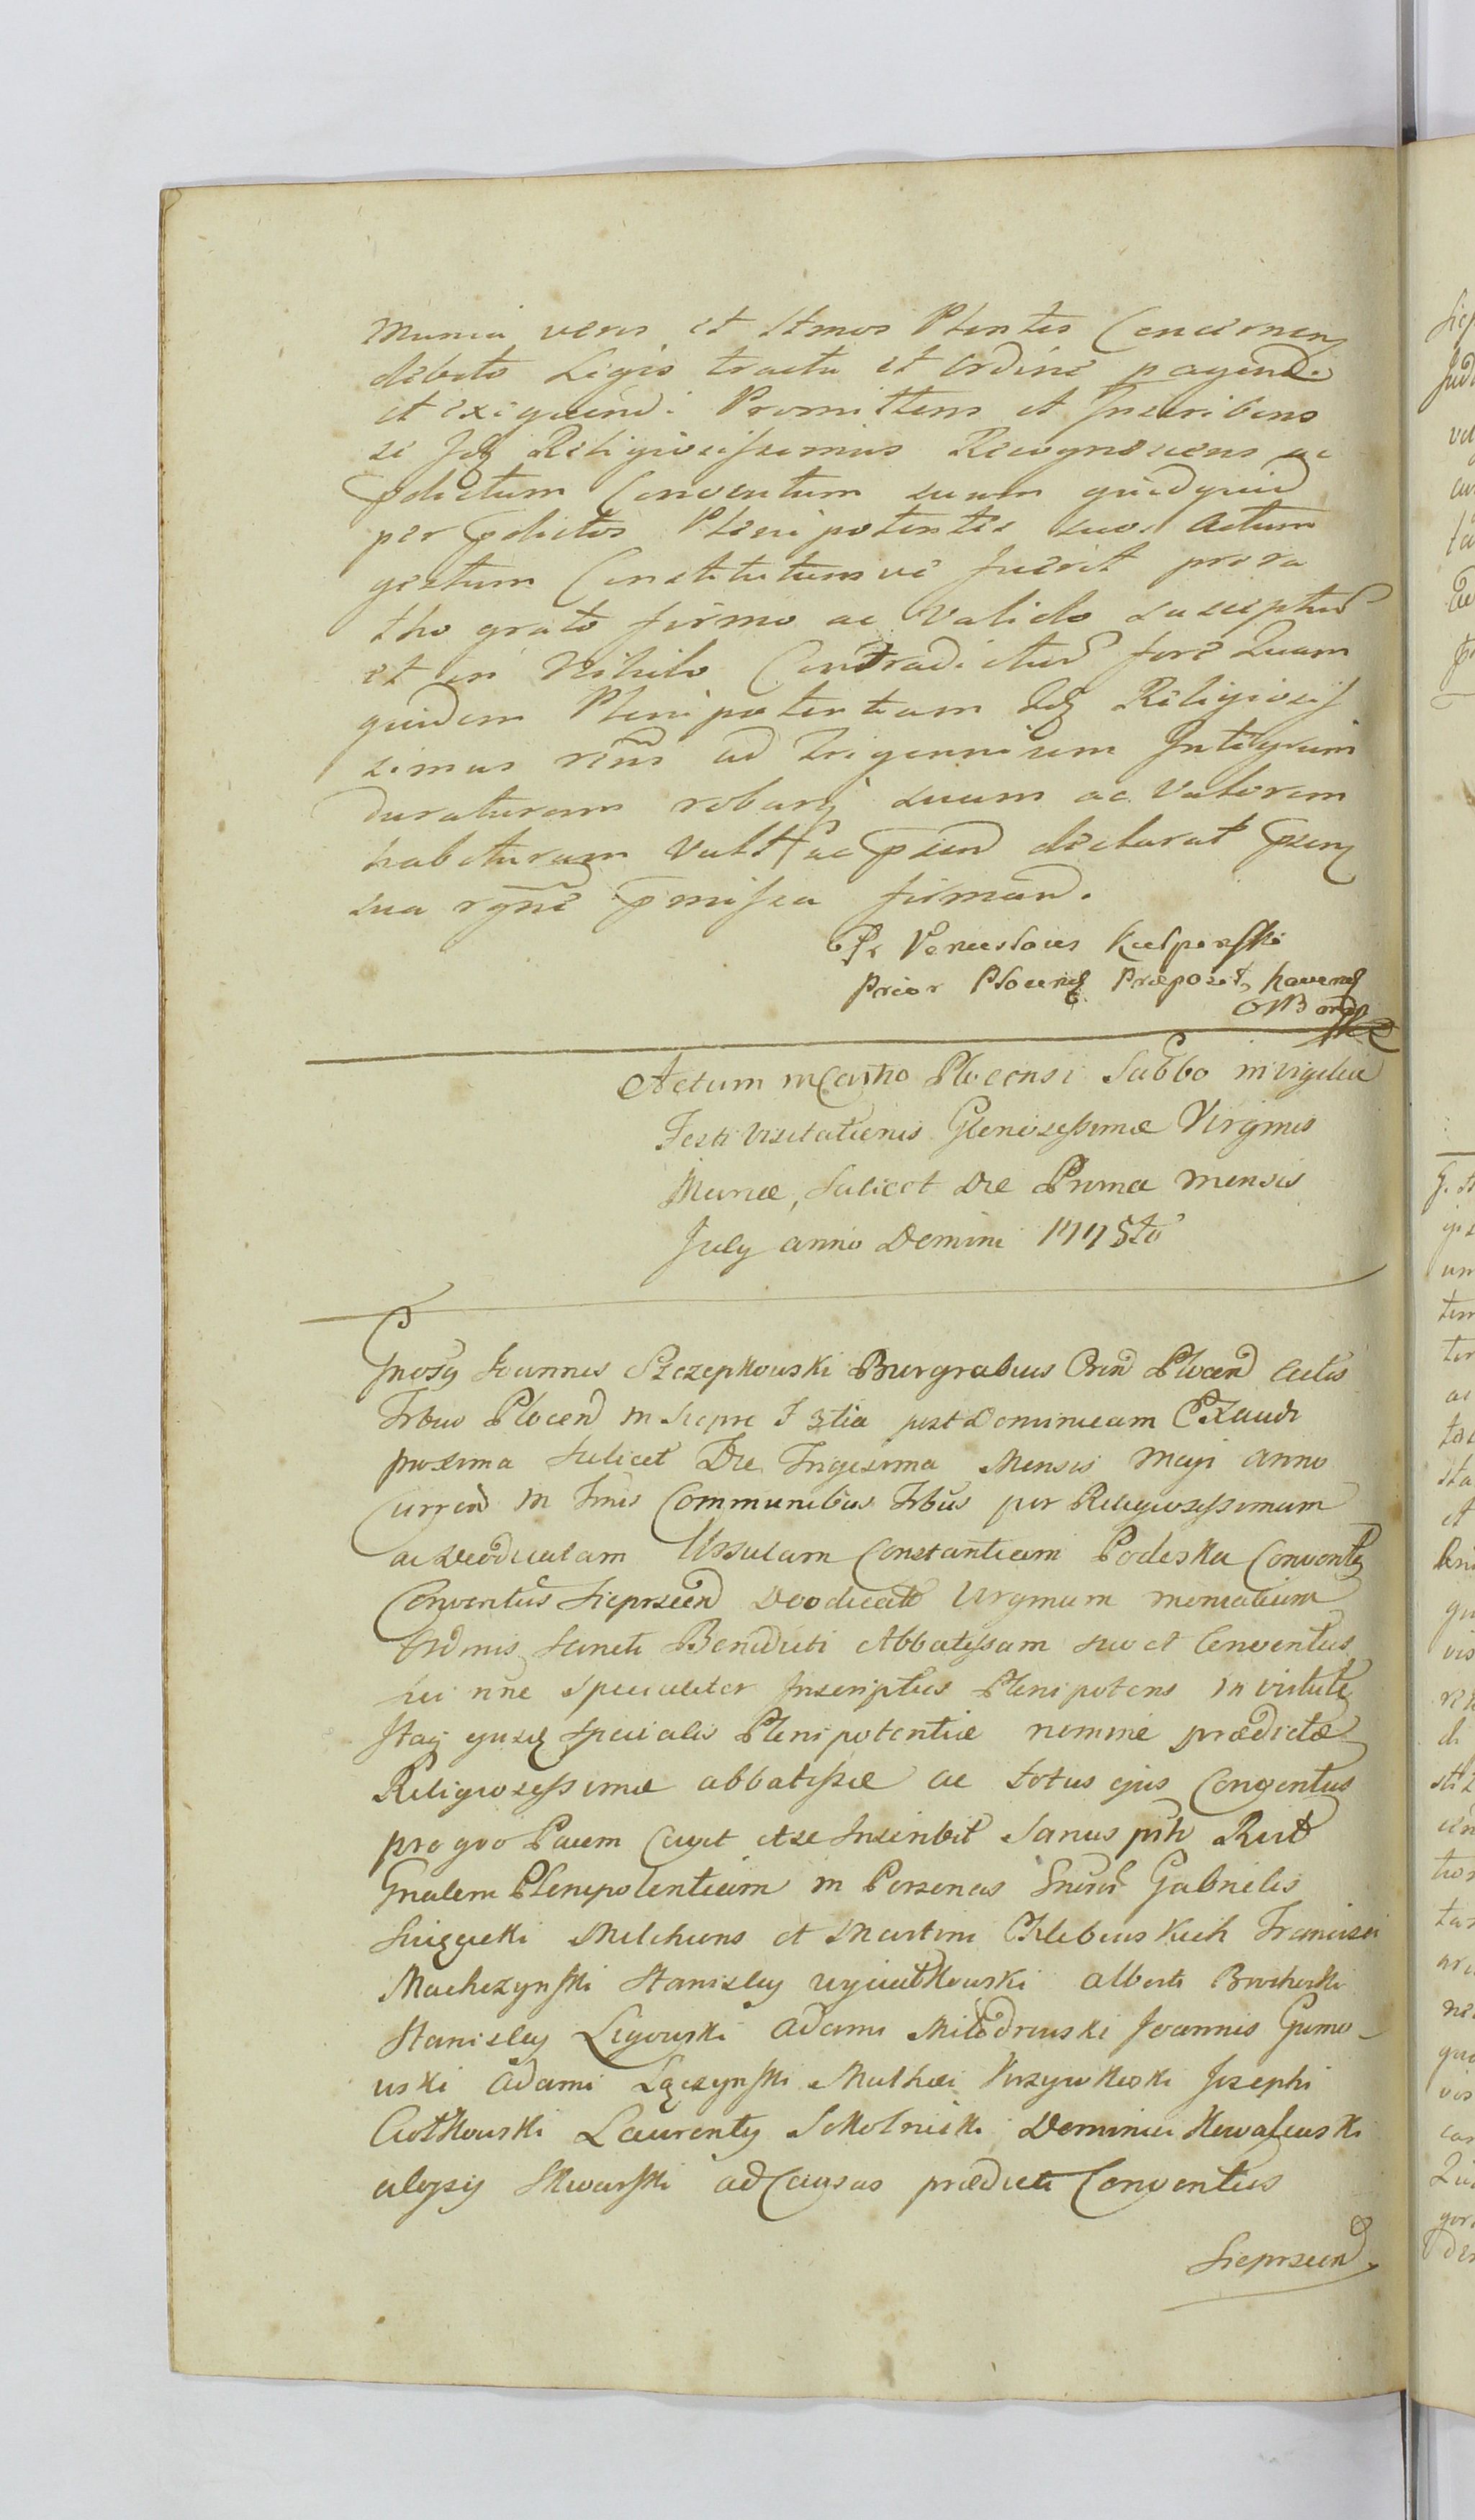 munia vero et Itmos Plentes Concernen
debito Legis tractu et Ordine pagend.
et exequendi Promittens et Inscribens
se Idq Religiosissimus Recognoscens ac
pdictum Conventum suum quidquid
per pdictos Plenipotentes suos Actum
gestum Constitutumve fuerit pro ra
tho grato firmo ac Valido suscepturũ
et in Nihilo Contradicturũ fore Quam
quidem Plenipotentiam Idq Religiosis
simus rẽns ad Trigennium Integrum
duraturam robury suum ac Valorem
habituram Vult ac psend declarat psen
sua rgne pmissa firmand.
Fr Venceslaus Kulpenski
Prior Plocens Præposit
OSB
Actum in Castro Plocensi Sabbo in vigilia
Festi Visitationis Gloriosissimæ Virginis
Mariæ, Scilicet Die Prima Mensis
July anno Domini 1775to
Gnosus Joannes Szczepkowski Burgrabius Cren Plocen actis
Trbus Plocen in Sierpc F 3tia post Dominicam Exaudi
proxima Scilicet Die Trigesima Mensis Maji Anno
Curren in Tmis Communibus Trbus per Religiosissimam
ac Deodicatam Ursulam Constantiam Podeska Convent
Conventus Sieprscen Deodicat Virginum monialium
Ordinis Sancti Benedicti Abbatissam suo et Conventus
sui nne Specialiter Inscriptus Plenipotens in virtute
Istaq ejusq Specialis Plenipotentiæ nomine prædictæ
Religiosissimæ abbatissæ ac totus ejus Conventus
pro quo Pacem Cavet et se Inscribit Sanus pth Rect
Gnalem Plenipotentiam in Personas Gnosor Gabrielis
Melchioris et Martini Chlebowskich Francisci
Machczynski Stanislay wyiatkowski Alberti Brochocki
Stanislay Ligowski Adami Milodrowski Joannis Gumo-
wski Adami Łączynski Mathæi Josephi
Ciołkowski Laurenty Sokolnicki Dominici Kowalewski
aloysy Skwarski ad Causas prædicti Conventus
Sieprscen